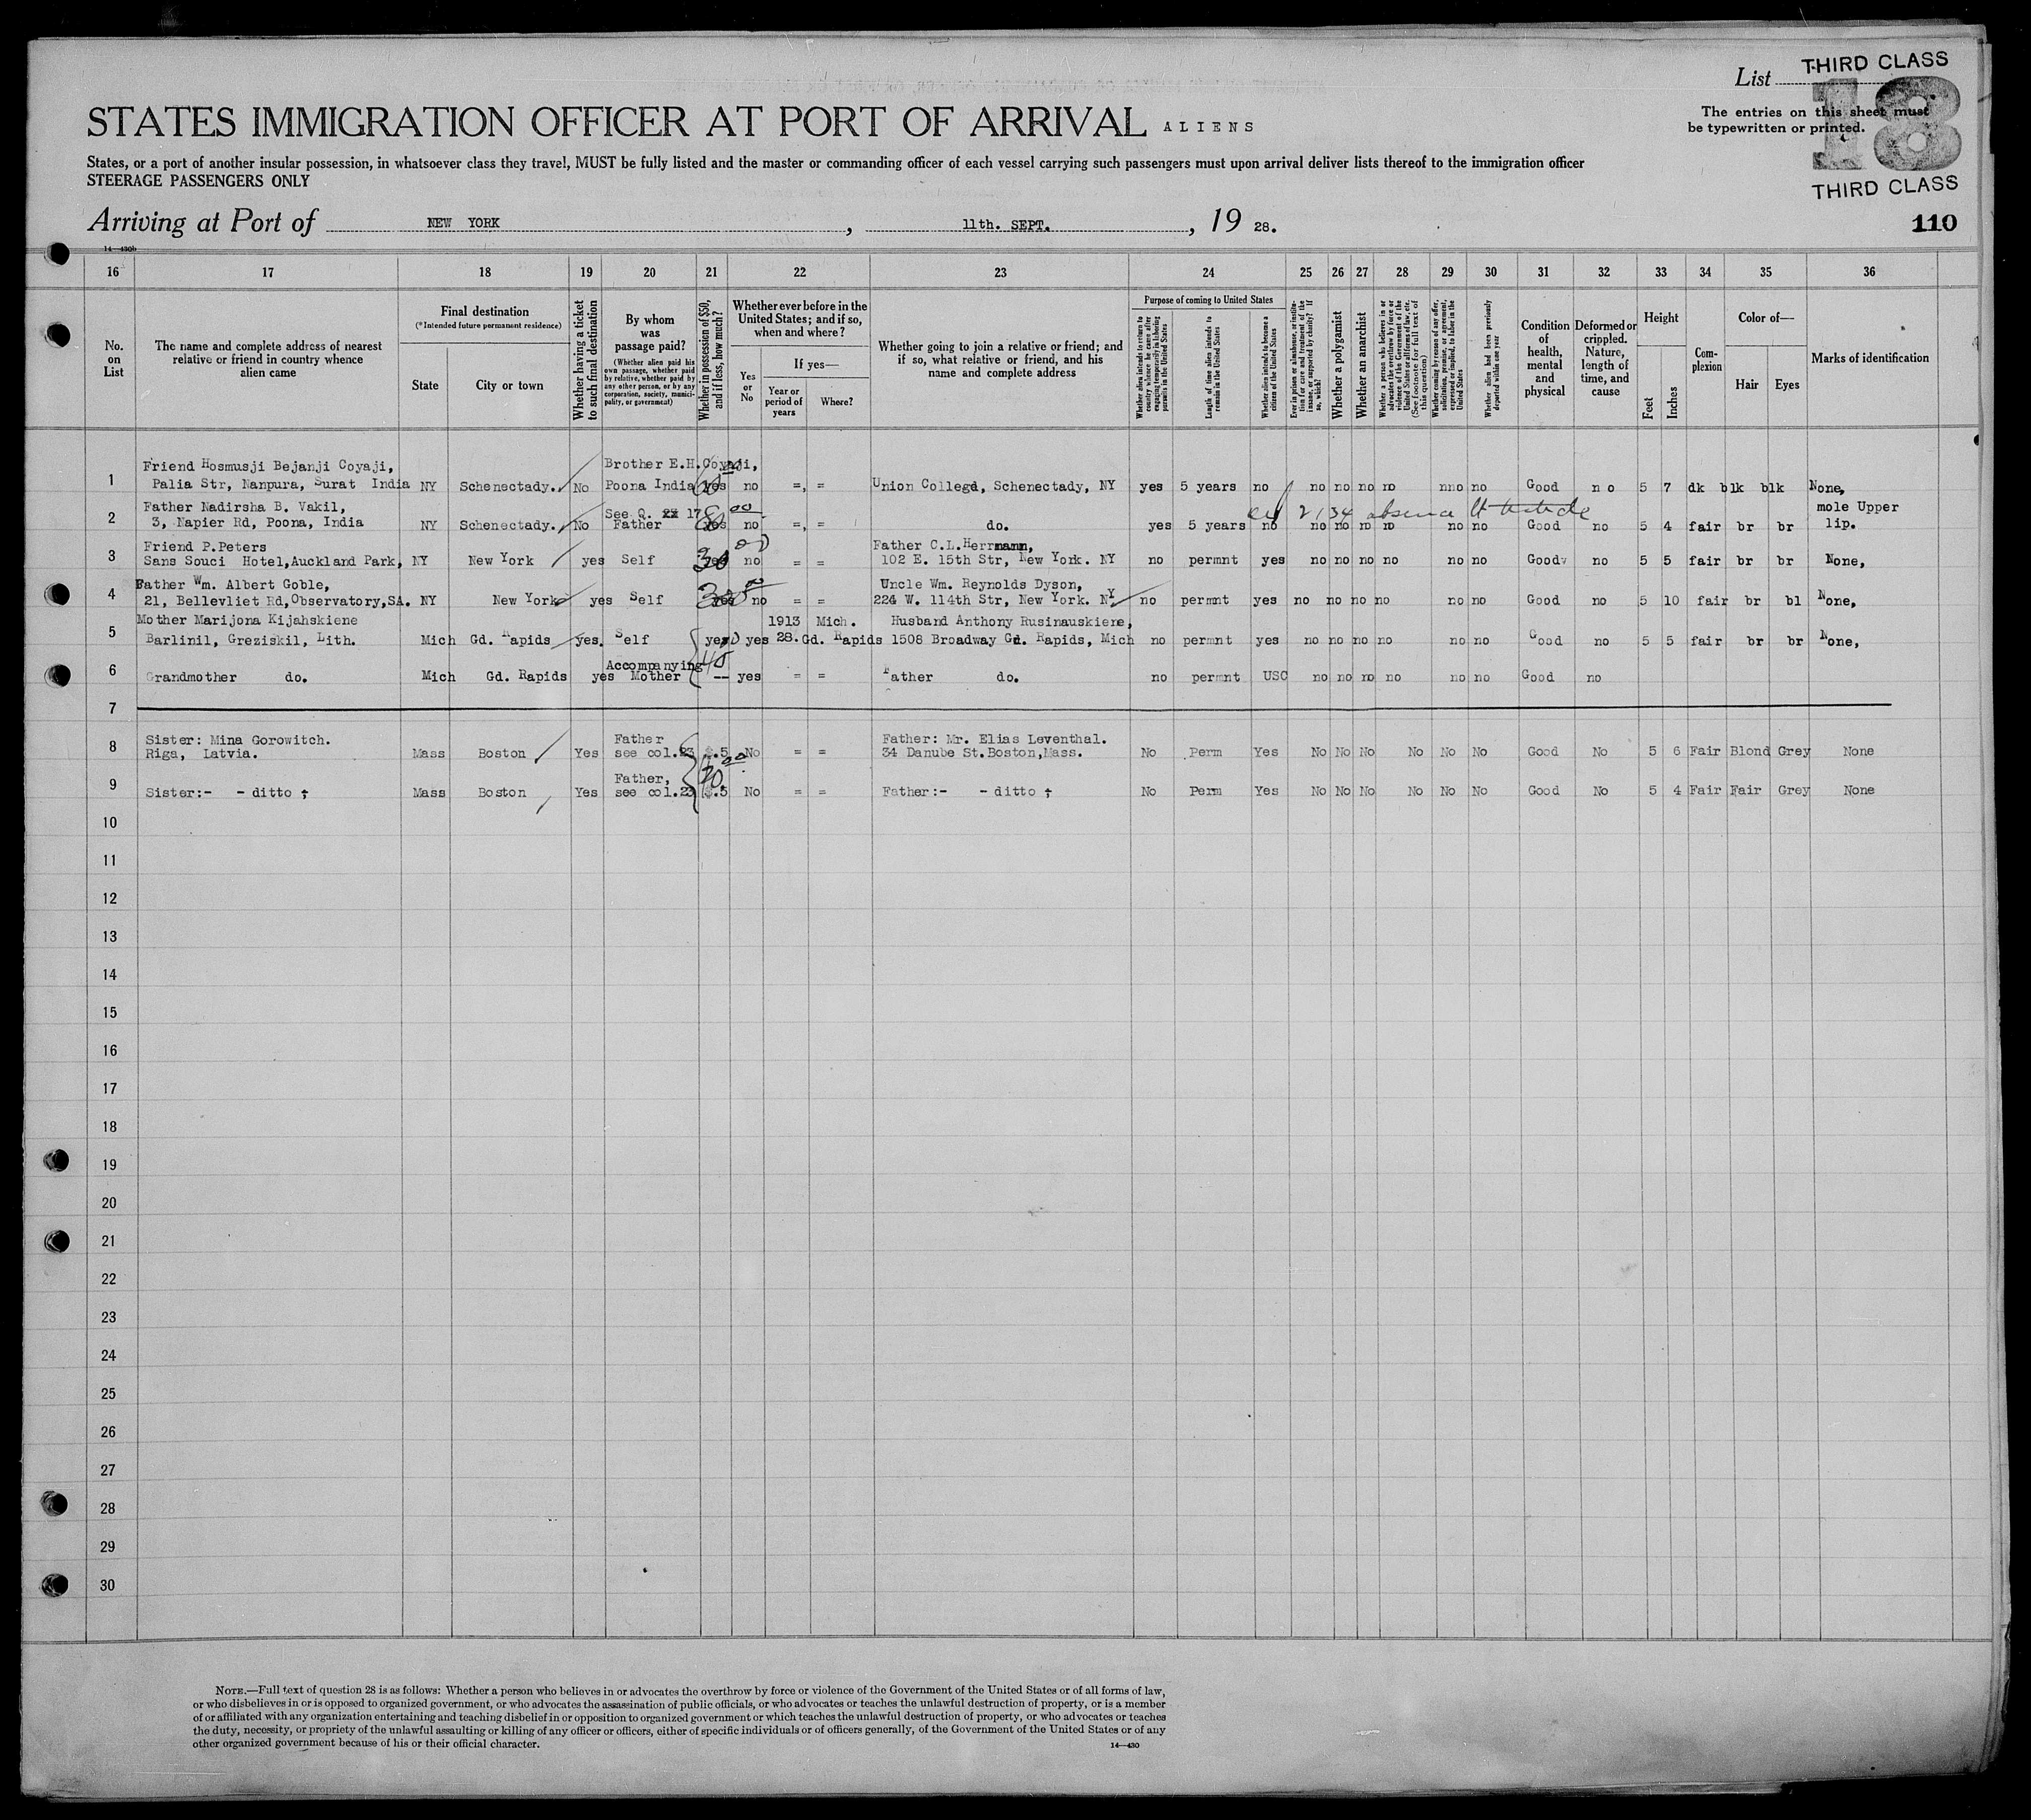 THIRD CLASS
List
18
The entries on this sheet must
be typewritten or printed.
THIRD CLASS
110
STATES IMMIGRATION OFFICER AT PORT OF ARRIVAL ALIENS
States, or a port of another insular possession, in whatsoever class they travel, MUST be fully listed and the master or commanding officer of each vessel carrying such passengers must upon arrival deliver lists thereof to the immigration officer
STEERAGE PASSENGERS ONLY
Arriving at Port of NEW YORK, 11th. SEPT., 19 28.
14—430b
16 17 18 19 20 21 22 23 24 25 26 27 28 29 30 31 32 33 34 35 36
No. on List
The name and complete address of nearest relative or friend in country whence alien came
Final destination
(*Intended future permanent residence)
State
City or town
Whether having a ticket to such final destination
By whom was passage paid?
(Whether alien paid his own passage, whether paid by relative, whether paid by any other person, or by any corporation, society, municipality, or government)
Whether in possession of $50, and if less, how much?
Whether ever before in the United States; and if so, when and where?
Yes or No
If yes—
Year or period of years
Where?
Whether going to join a relative or friend; and if so, what relative or friend, and his name and complete address
Purpose of coming to United States
Whether alien intends to return to country whence he came after engaging temporarily in laboring pursuits in the United States
Length of time alien intends to remain in the United States
Whether alien intends to become a citizen of the United States
Ever in prison or almshouse, or institution for care and treatment of the insane, or supported by charity? If so, which?
Whether a polygamist
Whether an anarchist
Whether a person who believes in or advocates the overthrow by force or violence of the Government of the United States or all forms of law, etc. (See footnote for full text of this question)
Whether coming by reason of any offer, solicitation, promise, or agreement, expressed or implied, to labor in the United States
Whether alien had been previously deported within one year
Condition of health, mental and physical
Deformed or crippled. Nature, length of time, and cause
Height
Feet
Inches
Complexion
Color of—
Hair
Eyes
Marks of identification
1 Friend Hosmusji Bejanji Coyaji, Brother E.H.Coyaji,
Palia Str, Nanpura, Surat India NY Schenectady. No Poona India yes no =, = Union College, Schenectady, NY yes 5 years no no no no no nno no Good no 5 7 dk blk blk None,
2 Father Nadirsha B. Vakil, See Q. 22 17 mole Upper
3, Napier Rd, Poona, India NY Schenectady. No Father yes no =, = do. yes 5 years no no no no no no no Good no 5 4 fair br br lip.
3 Friend P.Peters Father C.L.Herrmann,
Sans Souci Hotel,Auckland Park, NY New York yes Self yes no = = 102 E. 15th Str, New York. NY no permnt yes no no no no no no Good no 5 5 fair br br None,
4 Father Wm. Albert Goble, Uncle Wm. Reynolds Dyson,
21, Bellevliet Rd,Observatory,SA. NY New York yes Self yes no = = 224 W. 114th Str, New York. NY no permnt yes no no no no no no Good no 5 10 fair br bl None,
5 Mother Marijona Kijahskiene 1913 Mich. Husband Anthony Rusinauskiene,
Barlinil, Greziskil, Lith. Mich Gd. Rapids yes. Self yes yes 28. Gd. Rapids 1508 Broadway Gd. Rapids, Mich no permnt yes no no no no no no Good no 5 5 fair br br None,
6 Accompanying 40
Grandmother do. Mich Gd. Rapids yes Mother -- yes = = Father do. no permnt USC no no no no no no Good no
7
8 Sister: Mina Gorowitch. Father Father: Mr. Elias Leventhal.
Riga, Latvia. Mass Boston Yes see col.23 $.5 No = = 34 Danube St.Boston,Mass. No Perm Yes No No No No No No Good No 5 6 Fair Blond Grey None
9 Father,
Sister:- - ditto - Mass Boston Yes see col.23 $.5 No = = Father:- - ditto - No Perm Yes No No No No No No Good No 5 4 Fair Fair Grey None
10
11
12
13
14
15
16
17
18
19
20
21
22
23
24
25
26
27
28
29
30
NOTE.—Full text of question 28 is as follows: Whether a person who believes in or advocates the overthrow by force or violence of the Government of the United States or of all forms of law,
or who disbelieves in or is opposed to organized government, or who advocates the assassination of public officials, or who advocates or teaches the unlawful destruction of property, or is a member
of or affiliated with any organization entertaining and teaching disbelief in or opposition to organized government or which teaches the unlawful destruction of property, or who advocates or teaches
the duty, necessity, or propriety of the unlawful assaulting or killing of any officer or officers, either of specific individuals or of officers generally, of the Government of the United States or of any
other organized government because of his or their official character.
14—430